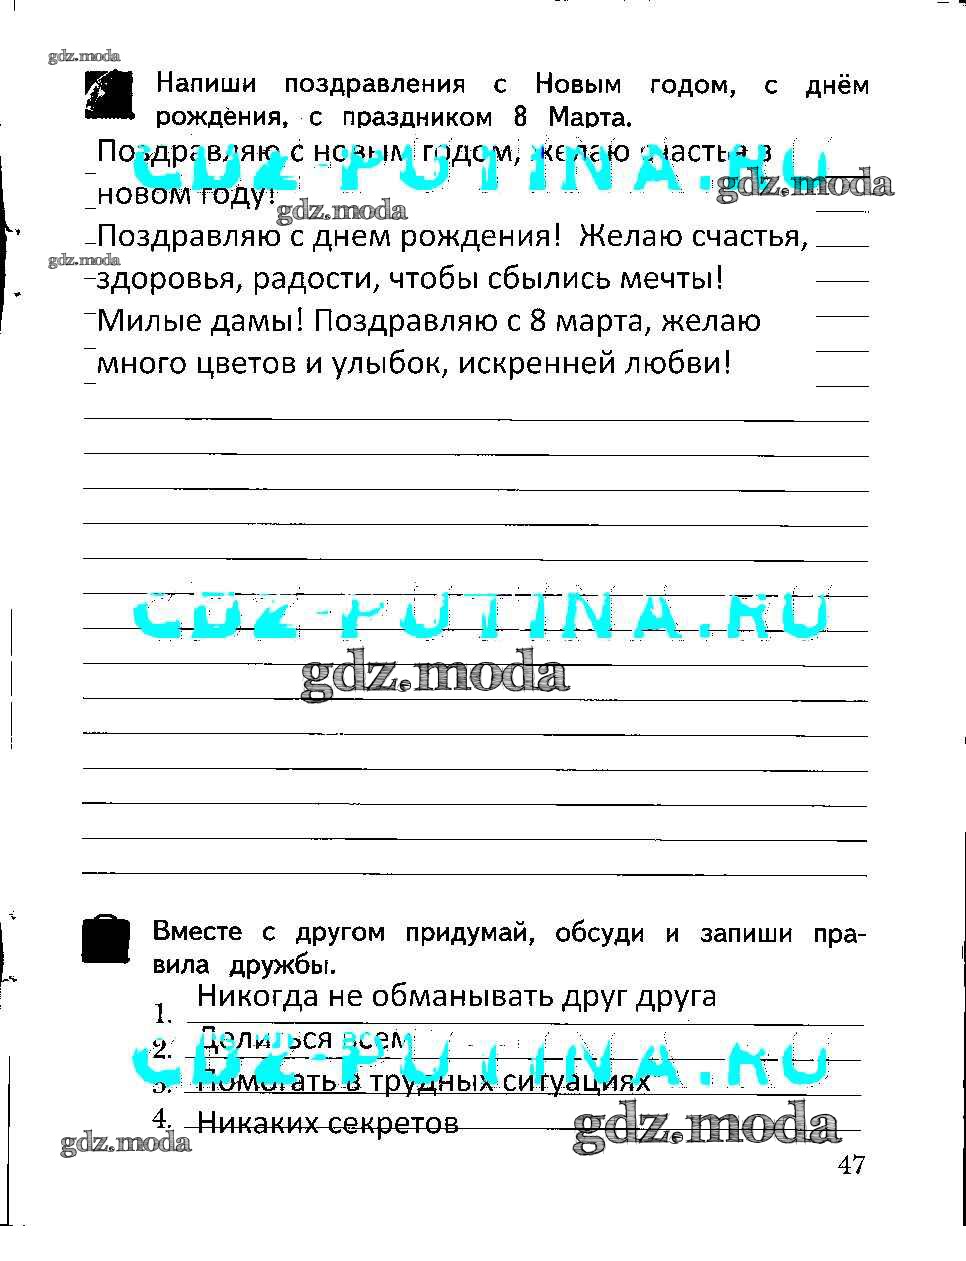 gdz.moda
Напиши поздравления с Новым годом, с днём
рождения, с праздником 8 Марта.
Поздравляю с новым годом, желаю счастья в
GDZ-PUTINA.RU
gdz.moda
новом году!
gdz.moda
Поздравляю с днем рождения! Желаю счастья,
gdz.moda
здоровья, радости, чтобы сбылись мечты!
Милые дамы! Поздравляю с 8 марта, желаю
много цветов и улыбок, искренней любви!
GDZ-PUTINA.RU
gdz.moda
Вместе с другом придумай, обсуди и запиши пра-
вила дружбы.
1. Никогда не обманывать друг друга
2. Делиться всем
GDZ-PUTINA.RU
3. Помогать в трудных ситуациях
4. Никаких секретов
gdz.moda
gdz.moda
47